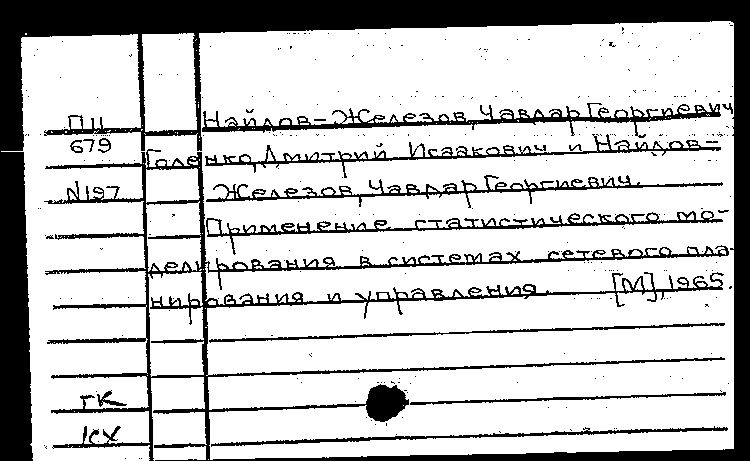 П11 Найдов-Железов, Чавдар Георгиевич
679 Голенко, Дмитрий Исаакович и Найдов-
N197 Железов, Чавдар Георгиевич.
Применение статистического мо-
делирования в системах сетевого пла-
нирования и управления. [М], 1965.
ГК